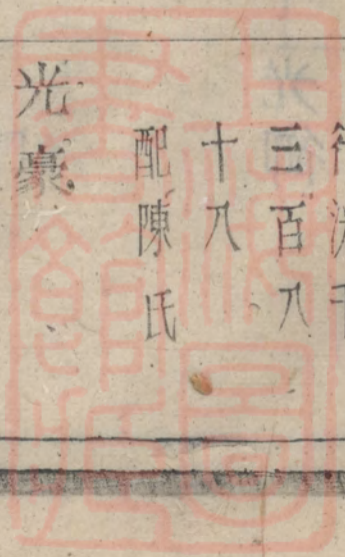 三百八
十八
配陳氏
光豪